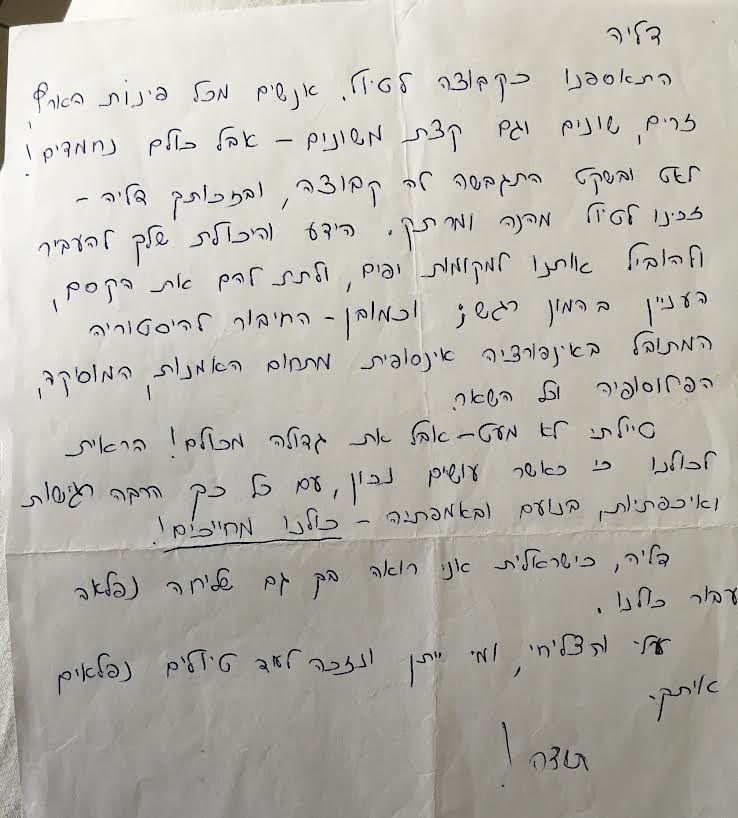 דליה
התאספנו כקבוצה לטיול. אנשים מכל פינות הארץ,
זרים, שונים וגם קצת משונים – אבל כולם נחמדים!
לאט ובשקט התגבשה לה קבוצה, ובזכותך דליה –
זכינו לטיול מהנה ומרתק. הידע והיכולת שלך להעביר
ולהוביל אותנו למקומות יפים, ולתת להם את הקסם,
העניין בהמון רגש; וכמובן – החיבור להיסטוריה
המתובל באינפורציה אינסופית מתחום האמנות, המוסיקה,
הפילוסופיה וכל השאר.
טיילתי לא מעט – אבל את גדולה מכולם! הראית
לכולנו כי כאשר עושים נכון, עם כל כך הרבה רגישות
ואיכפתיות, בנועם ובאמפתיה – כולנו מחייכים!
דליה, כישראלית אני רואה בך גם שליחה נפלאה
עבור כולנו.
עלי והצליחי, ומי ייתן ונזכה לעוד טיולים נפלאים
איתך.
תודה!